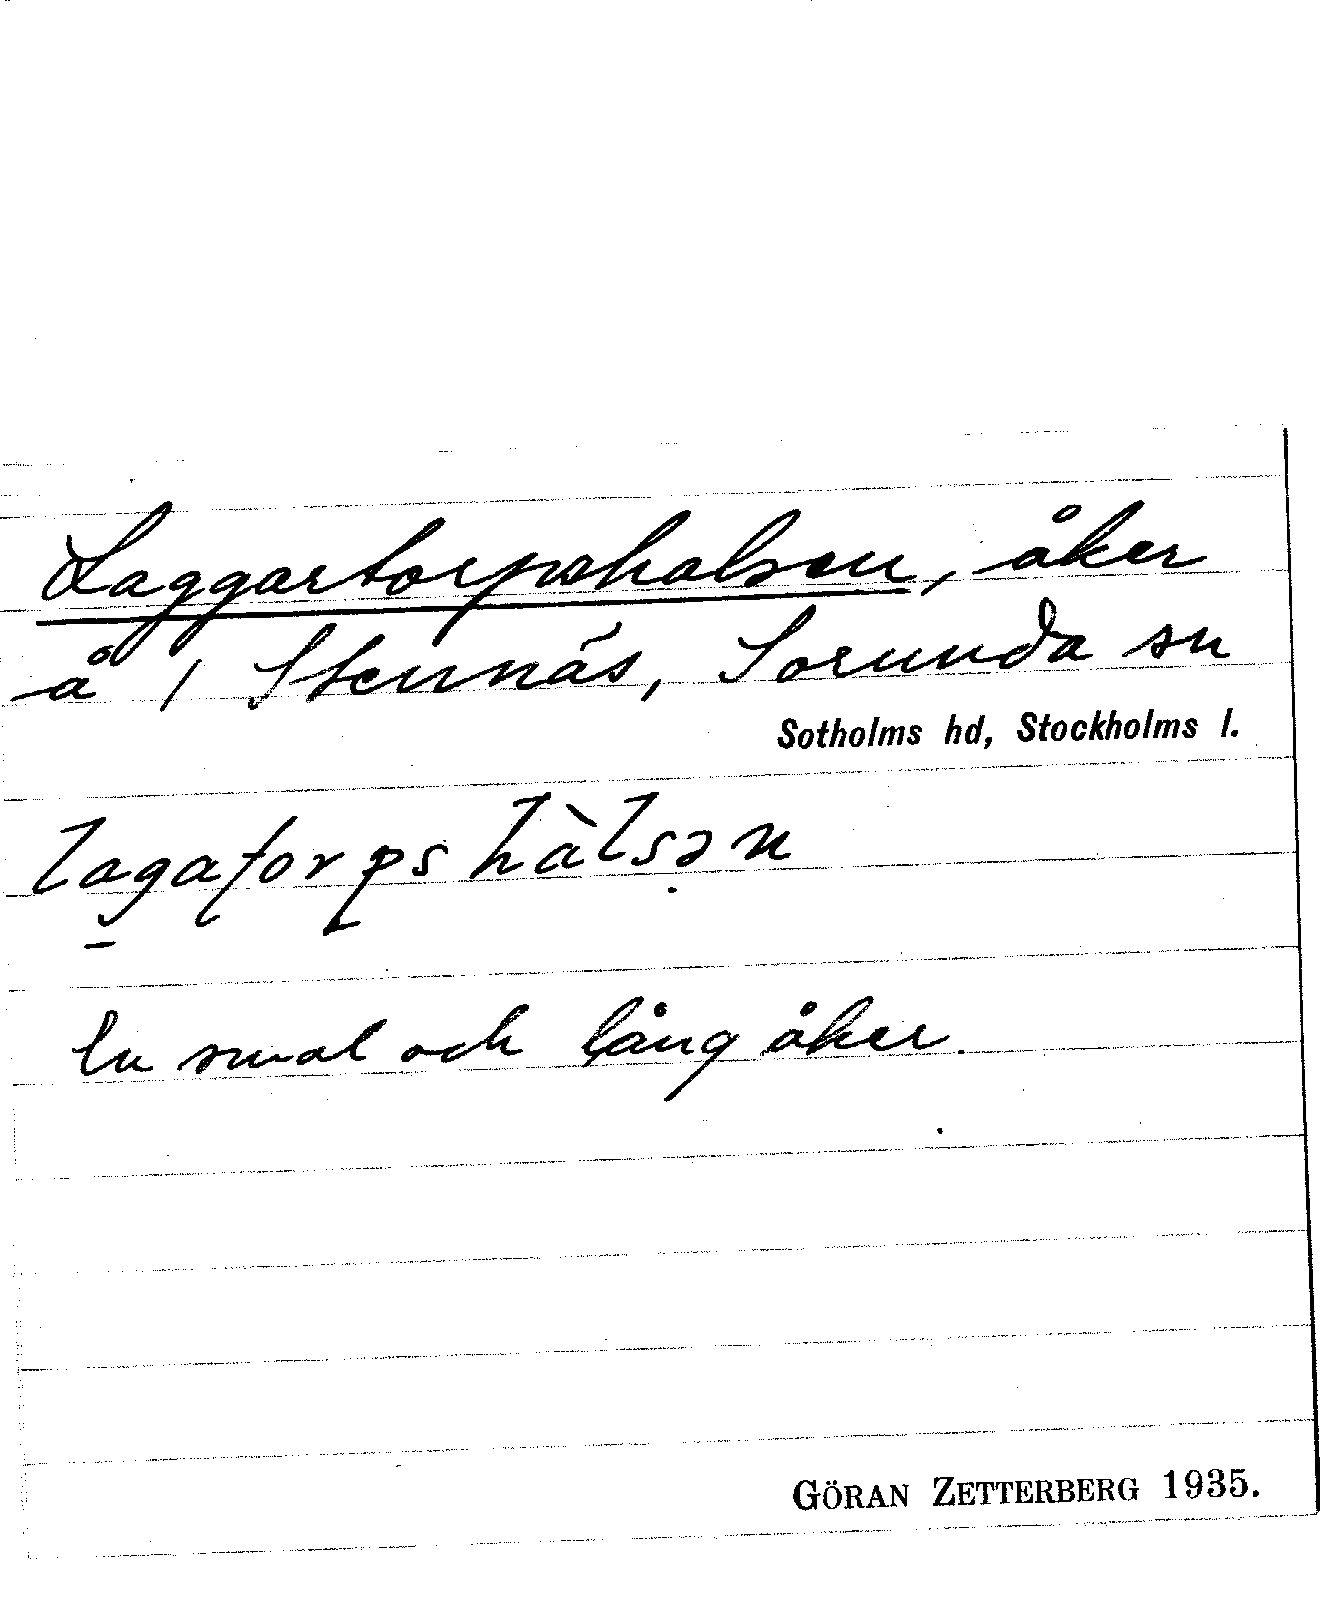 Laggartorpshalsen, åker
å / Stennäs, Sorunda sn
Sotholms hd, Stockholms l.
lagatorpshàlsən
En smal och lång åker.
GÖRAN ZETTERBERG 1935.